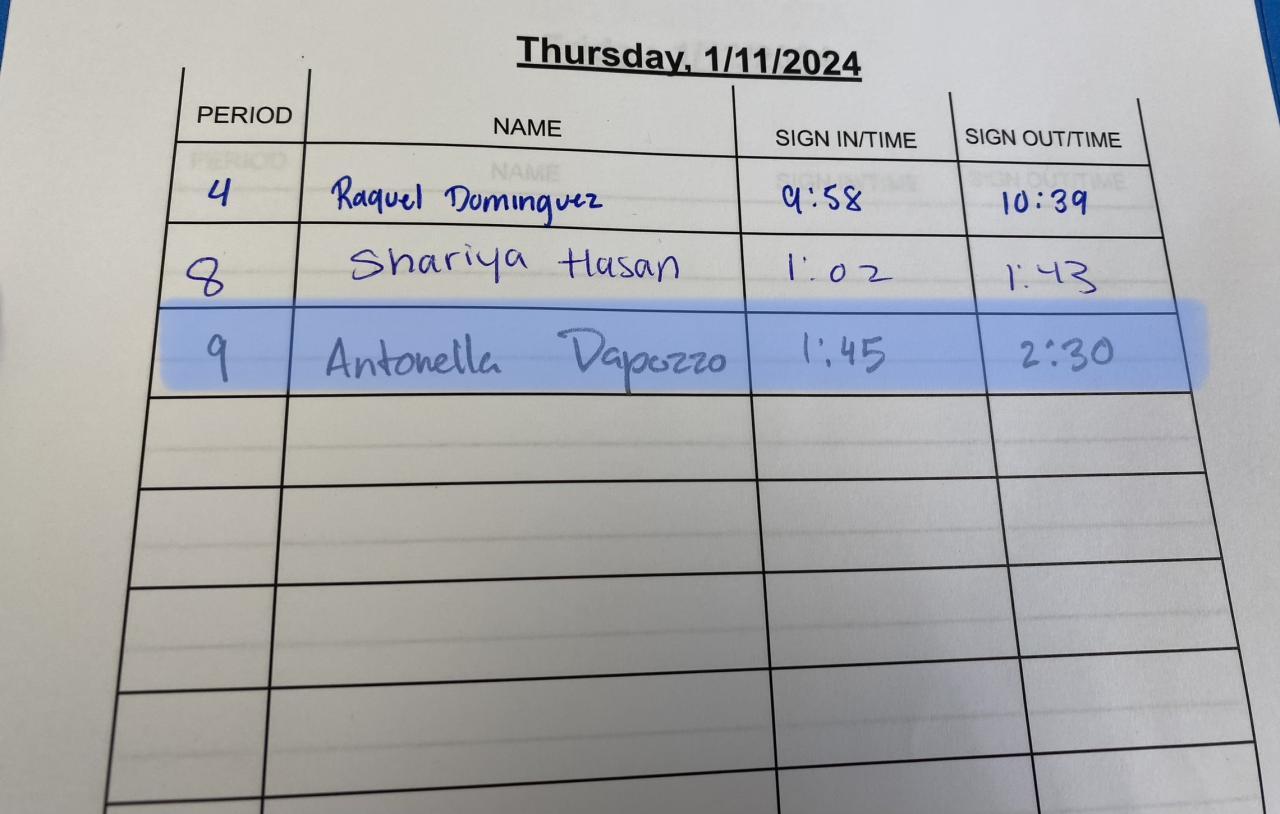 Thursday, 1/11/2024
PERIOD NAME SIGN IN/TIME SIGN OUT/TIME
4 Raquel Dominguez 9:58 10:39
8 Shariya Hasan 1:02 1:43
9 Antonella Dapozzo 1:45 2:30